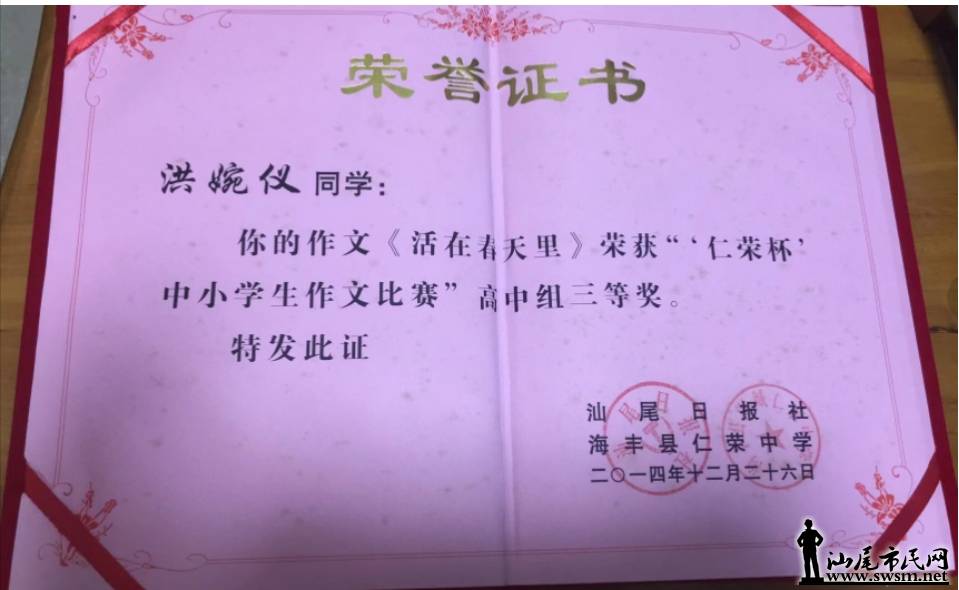 荣誉证书
洪婉仪 同学：
你的作文《活在春天里》荣获“‘仁荣杯’
中小学生作文比赛”高中组三等奖。
特发此证
汕尾日报社
海丰县仁荣中学
二〇一四年十二月二十六日
汕尾市民网
www.swsm.net